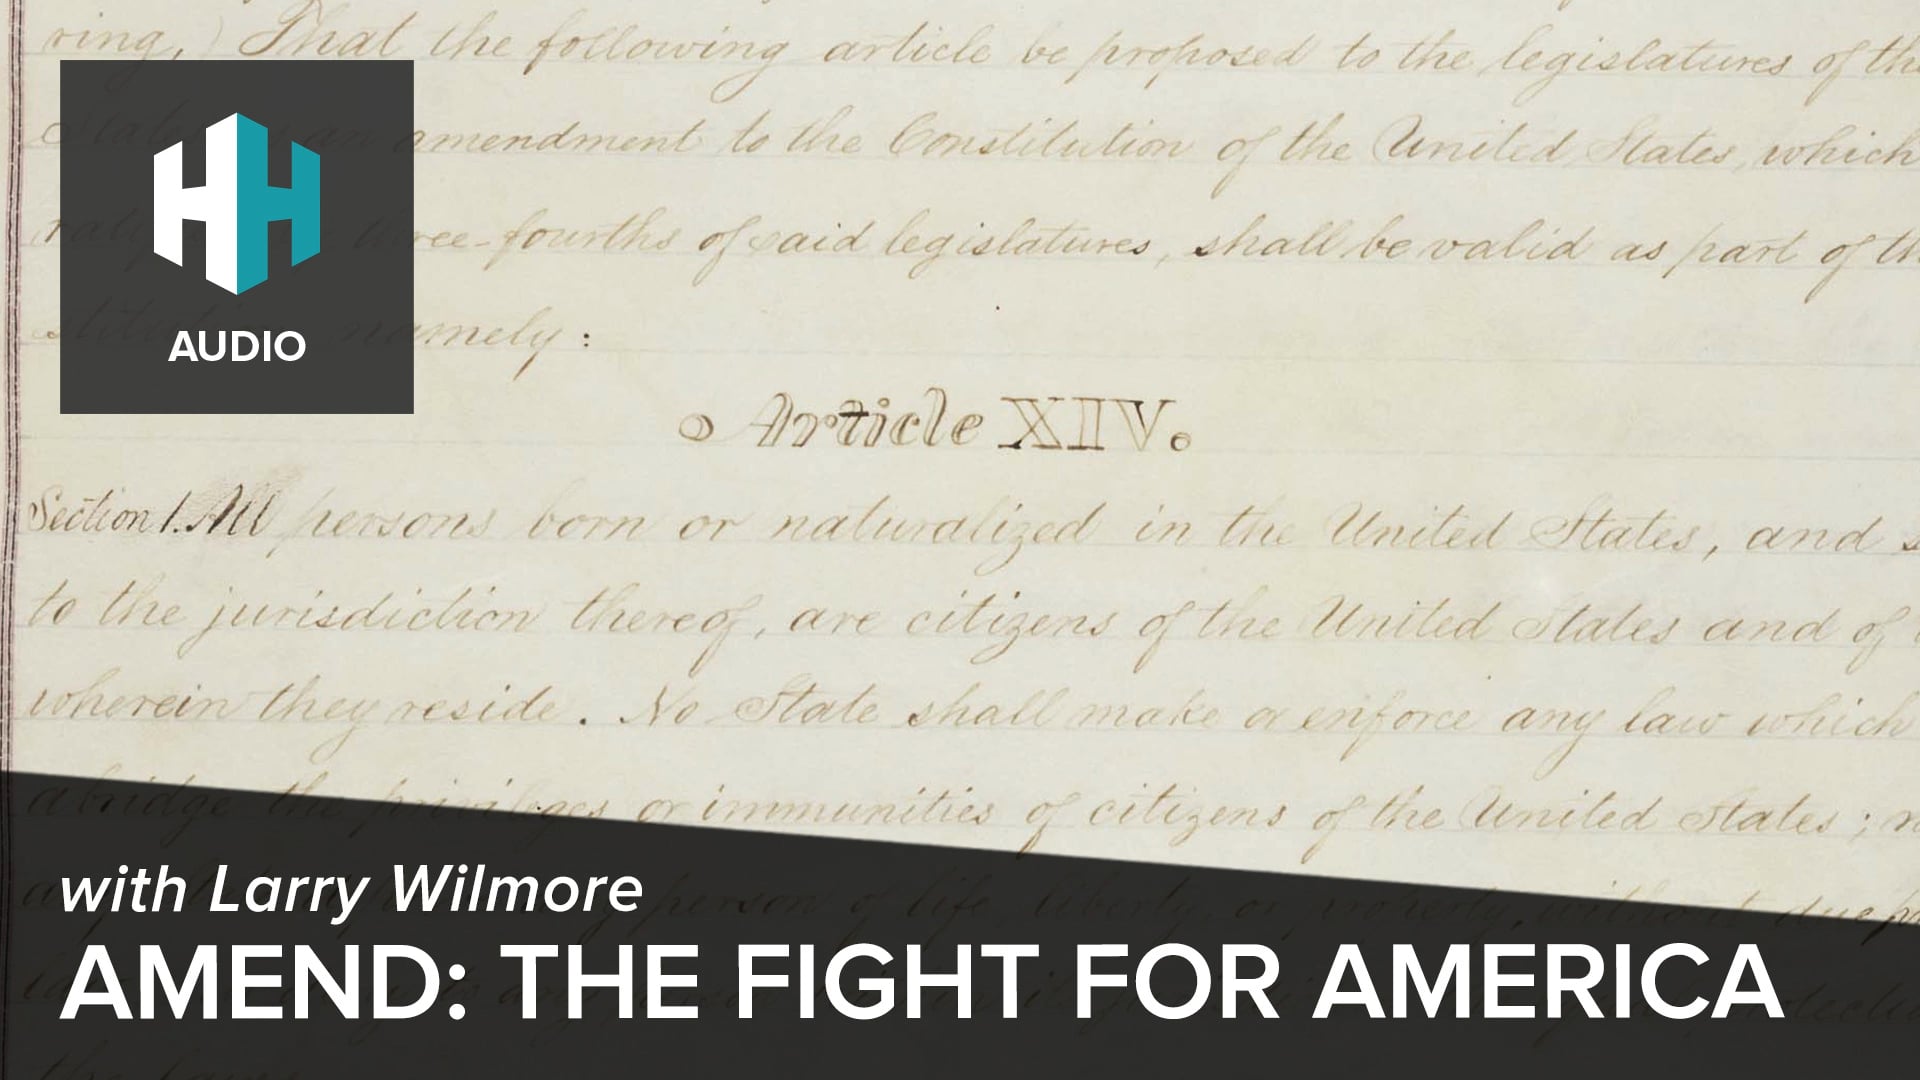 ring,) That the following article be proposed to the legislatures of the
State as an amendment to the Constitution of the United States, which
three-fourths of said legislatures, shall be valid as part of th
namely:
Article XIV.
Section 1. All persons born or naturalized in the United States, and s
to the jurisdiction thereof, are citizens of the United States and of
wherein they reside. No State shall make or enforce any law which
abridge the privileges or immunities of citizens of the United States; n
person of life, liberty, or property, without due p
AUDIO
with Larry Wilmore
AMEND: THE FIGHT FOR AMERICA